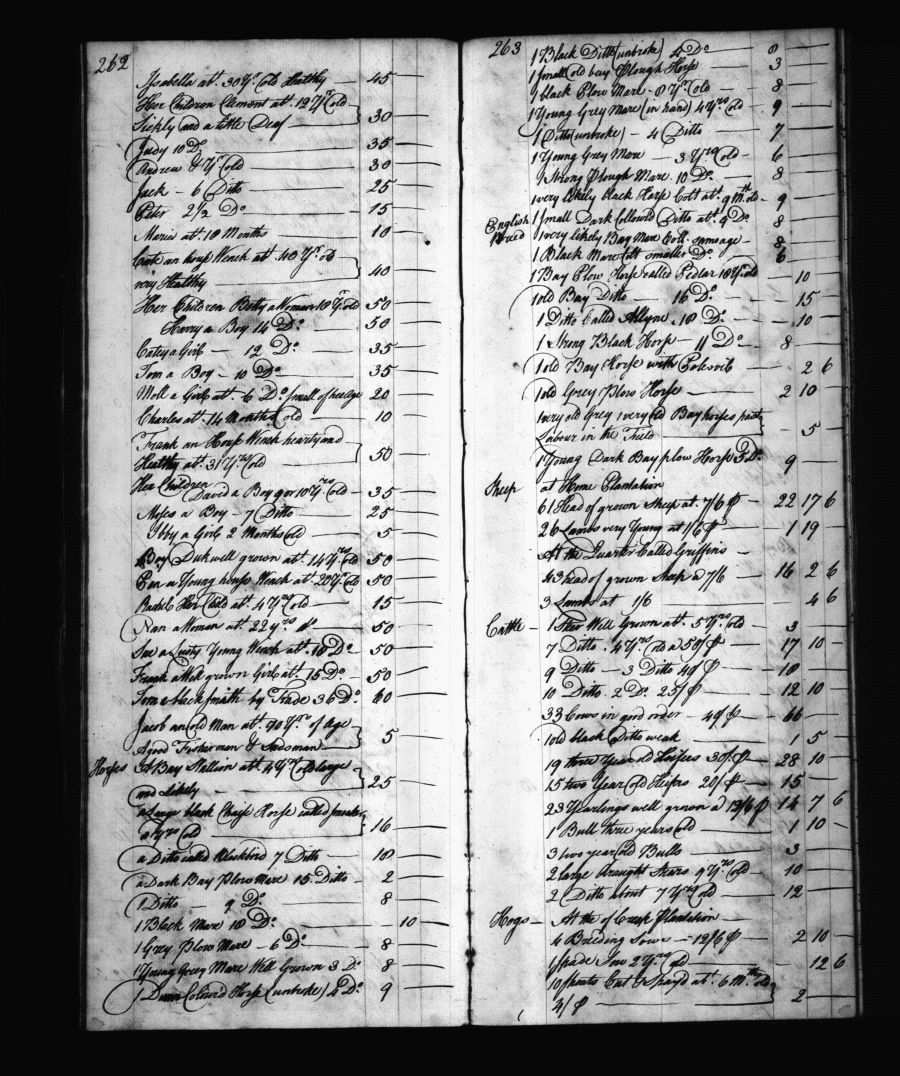 262
Isabella at 30 Yrs old Healthy 45
Her Children Clement at 12 Yrs Old
Sickly and a little Deaf 30
Judy 10 Do 35
Andrew 8 Yrs Old 30
Jack - 6 Ditto 25
Peter 2 1/2 Do 15
Maria at 18 Months 10
an house Wench at 40 Yrs old
very Healthy 40
Her Children Betty a Woman 18 Yrs old 50
Harry a Boy 14 Do 50
Catey a Girl - 12 Do 35
Tom a Boy - 10 Do 35
Moll a Girl at 6 Do small of her Age 20
Charles at 14 Months Old 10
Frank an House Wench hearty and
Healthy at 31 Yrs Old 50
Her Children
David a Boy 10 Yrs Old 35
Moses a Boy - 7 Ditto 25
Ibby a Girl 2 Months Old 5
Boy Duk well grown at 14 Yrs old 50
a Young house Wench at 20 Yrs Old 50
Rachel Her Child at 4 Yrs Old 15
Nan a Woman at 22 Yrs 50
a Lusty Young Wench at 18 Do 50
Frank a Well grown Girl at 15 Do 50
Tom a blacksmith by Trade 36 Do 60
Jacob an Old Man at 70 Yrs of Age
A good Fisherman & Seedsman 5
Horses A Bay Stallion at 4 Yrs Old large
and Likely 25
a Large black Chaise Horse called
Yrs Old 16
a Ditto called Blackbird 7 Ditto 18
a Dark Bay Plow Mare 15 Ditto 2
1 Ditto - 9 Do 8
1 Black Mare 18 Do 10
1 Grey Plow Mare - 6 Do 8
1 Young Grey Mare Well Grown 3 Do 8
1 Dunn Colourd Horse (unbroke) 4 Do 9
263
1 Black Ditto (unbroke) 4 Do 8
1 small old bay Plough Horse 3
1 black Plow Mare - 8 Yrs Old 8
1 Young Grey Mare (in hand) 4 Yrs Old 9
1 Ditto (unbroke) - 4 Ditto 7
1 Young Grey Mare - 3 Yrs Old 6
1 Strong Plough Mare 10 Do 8
1 very likely black Horse Colt at 9 Mth old 9
English Breed
1 small Dark Collourd Ditto at 9 Do 8
1 very likely Bay Mare Colt same age 8
1 Black Mare Colt smaller Do 6
1 Bay Plow Horse called Pedlar 18 Yrs old 10
1 old Bay Ditto - 16 Do 15
1 Ditto Called 18 Do 10
1 Strong Black Horse - 11 Do 8
1 old Bay Horse with 2 6
1 old Grey Plow Horse 2 10
1 very old Grey 1 very old Bay horses past
Labour in the Field 5
1 Young Dark Bay plow Horse 3 Do 9
Sheep at Home Plantation
61 Head of grown Sheep at 7/6 22 17 6
26 Lambs very Young at 1/6 1 19
At the Quarter Called Griffins
43 head of grown Sheep a 7/6 16 2 6
3 Lambs at 1/6 4 6
Cattle 1 Steer Well Grown at 5 Yrs Old 3
7 Ditto 4 Yrs Old a 50/ 17 10
9 Ditto - 3 Ditto 40/ 18
10 Ditto 2 Do 25/ 12 10
33 Cows in good order - 40/ 66
1 old black Ditto weak 1 5
19 three Year old Heifers 30/ 28 10
15 two Year Old Heifers 20/ 15
23 Yearlings well grown a 12/6 14 7 6
1 Bull three years old 1 10
3 two year old Bulls 3
2 large draught Steers 9 Yrs Old 10
2 Ditto about 7 Yrs Old 12
Hogs At the of Creek Plantation
4 Breeding Sows - 12/6 2 10
1 spade Sow 2 Yrs old 12 6
10 shoats Cut & spay'd at 6 Mths old
4/ 2